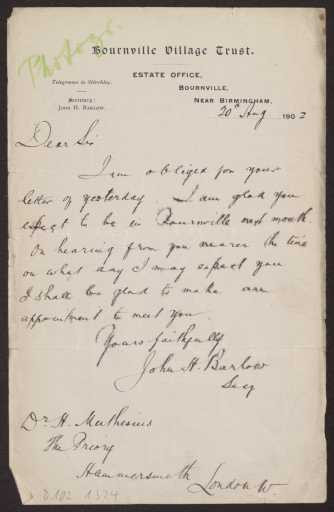 Photogr.
Bournville Village Trust.
ESTATE OFFICE,
BOURNVILLE,
NEAR BIRMINGHAM,
Telegrams to Stirchley.
Secretary:
JOHN H. BARLOW.
20th Aug 1902
Dear Sir
I am obliged for your
letter of yesterday. I am glad you
expect to be in Bournville next month.
On hearing from you nearer the time
on what day I may expect you
I shall be glad to make an
appointment to meet you.
Yours faithfully
John H. Barlow
Secy
Dr H. Muthesius
The Priory
Hammersmith London W.
D 102 1324